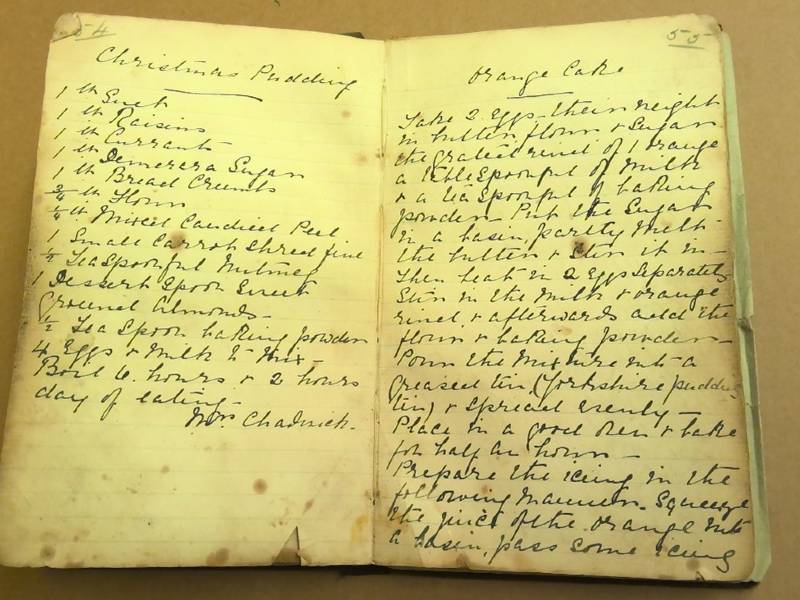 54
Christmas Pudding
1 lb Suet
1 lb Raisins
1 lb Currants
1 lb Demerara Sugar
1 lb Bread Crumbs
3/4 lb Flour
1/4 lb Mixed Candied Peel
1 Small Carrot Shred fine
1/2 Teaspoonful Nutmeg
1 Dessert Spoon Sweet
Ground Almonds -
1/2 Tea Spoon baking powder
4 Eggs & Milk to Mix -
Boil 6. hours & 2 hours
day of eating -
Mrs Chadwick.
55
Orange Cake
Take 2 Eggs - their weight
in butter, flour & Sugar
the grated rind of 1 orange
a tablespoonful of Milk
& a tea spoonful of baking
powder - Put the Sugar
in a basin, partly Melt
the butter & Stir it in -
Then beat in 2 Eggs Separately
Stir in the Milk & orange
rind & afterwards add the
flour & baking powder -
Pour the Mixture into a
greased tin (Yorkshire puddg
tin) & Spread evenly -
Place in a good Oven & bake
for half an hour -
Prepare the icing in the
following Manner. Squeeze
the juice of the orange into
a basin, pass some icing